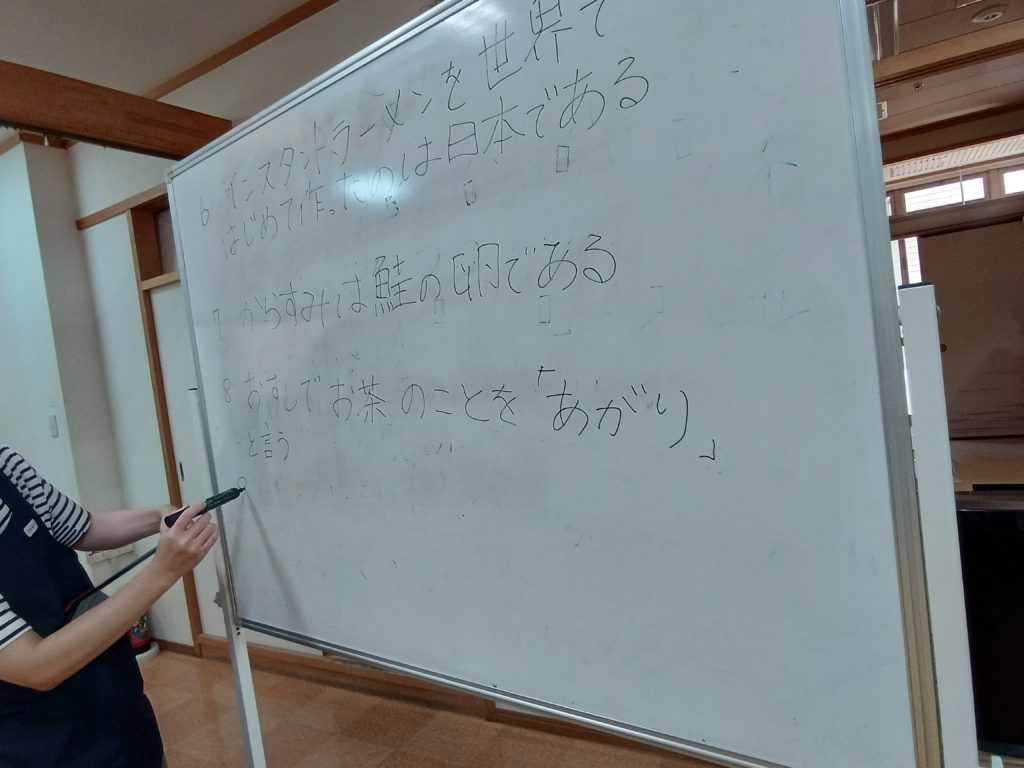 6 インスタントラーメンを世界で
はじめて作ったのは日本である
7 からすみは鮭の卵である
8 おすしでお茶のことを「あがり」
と言う